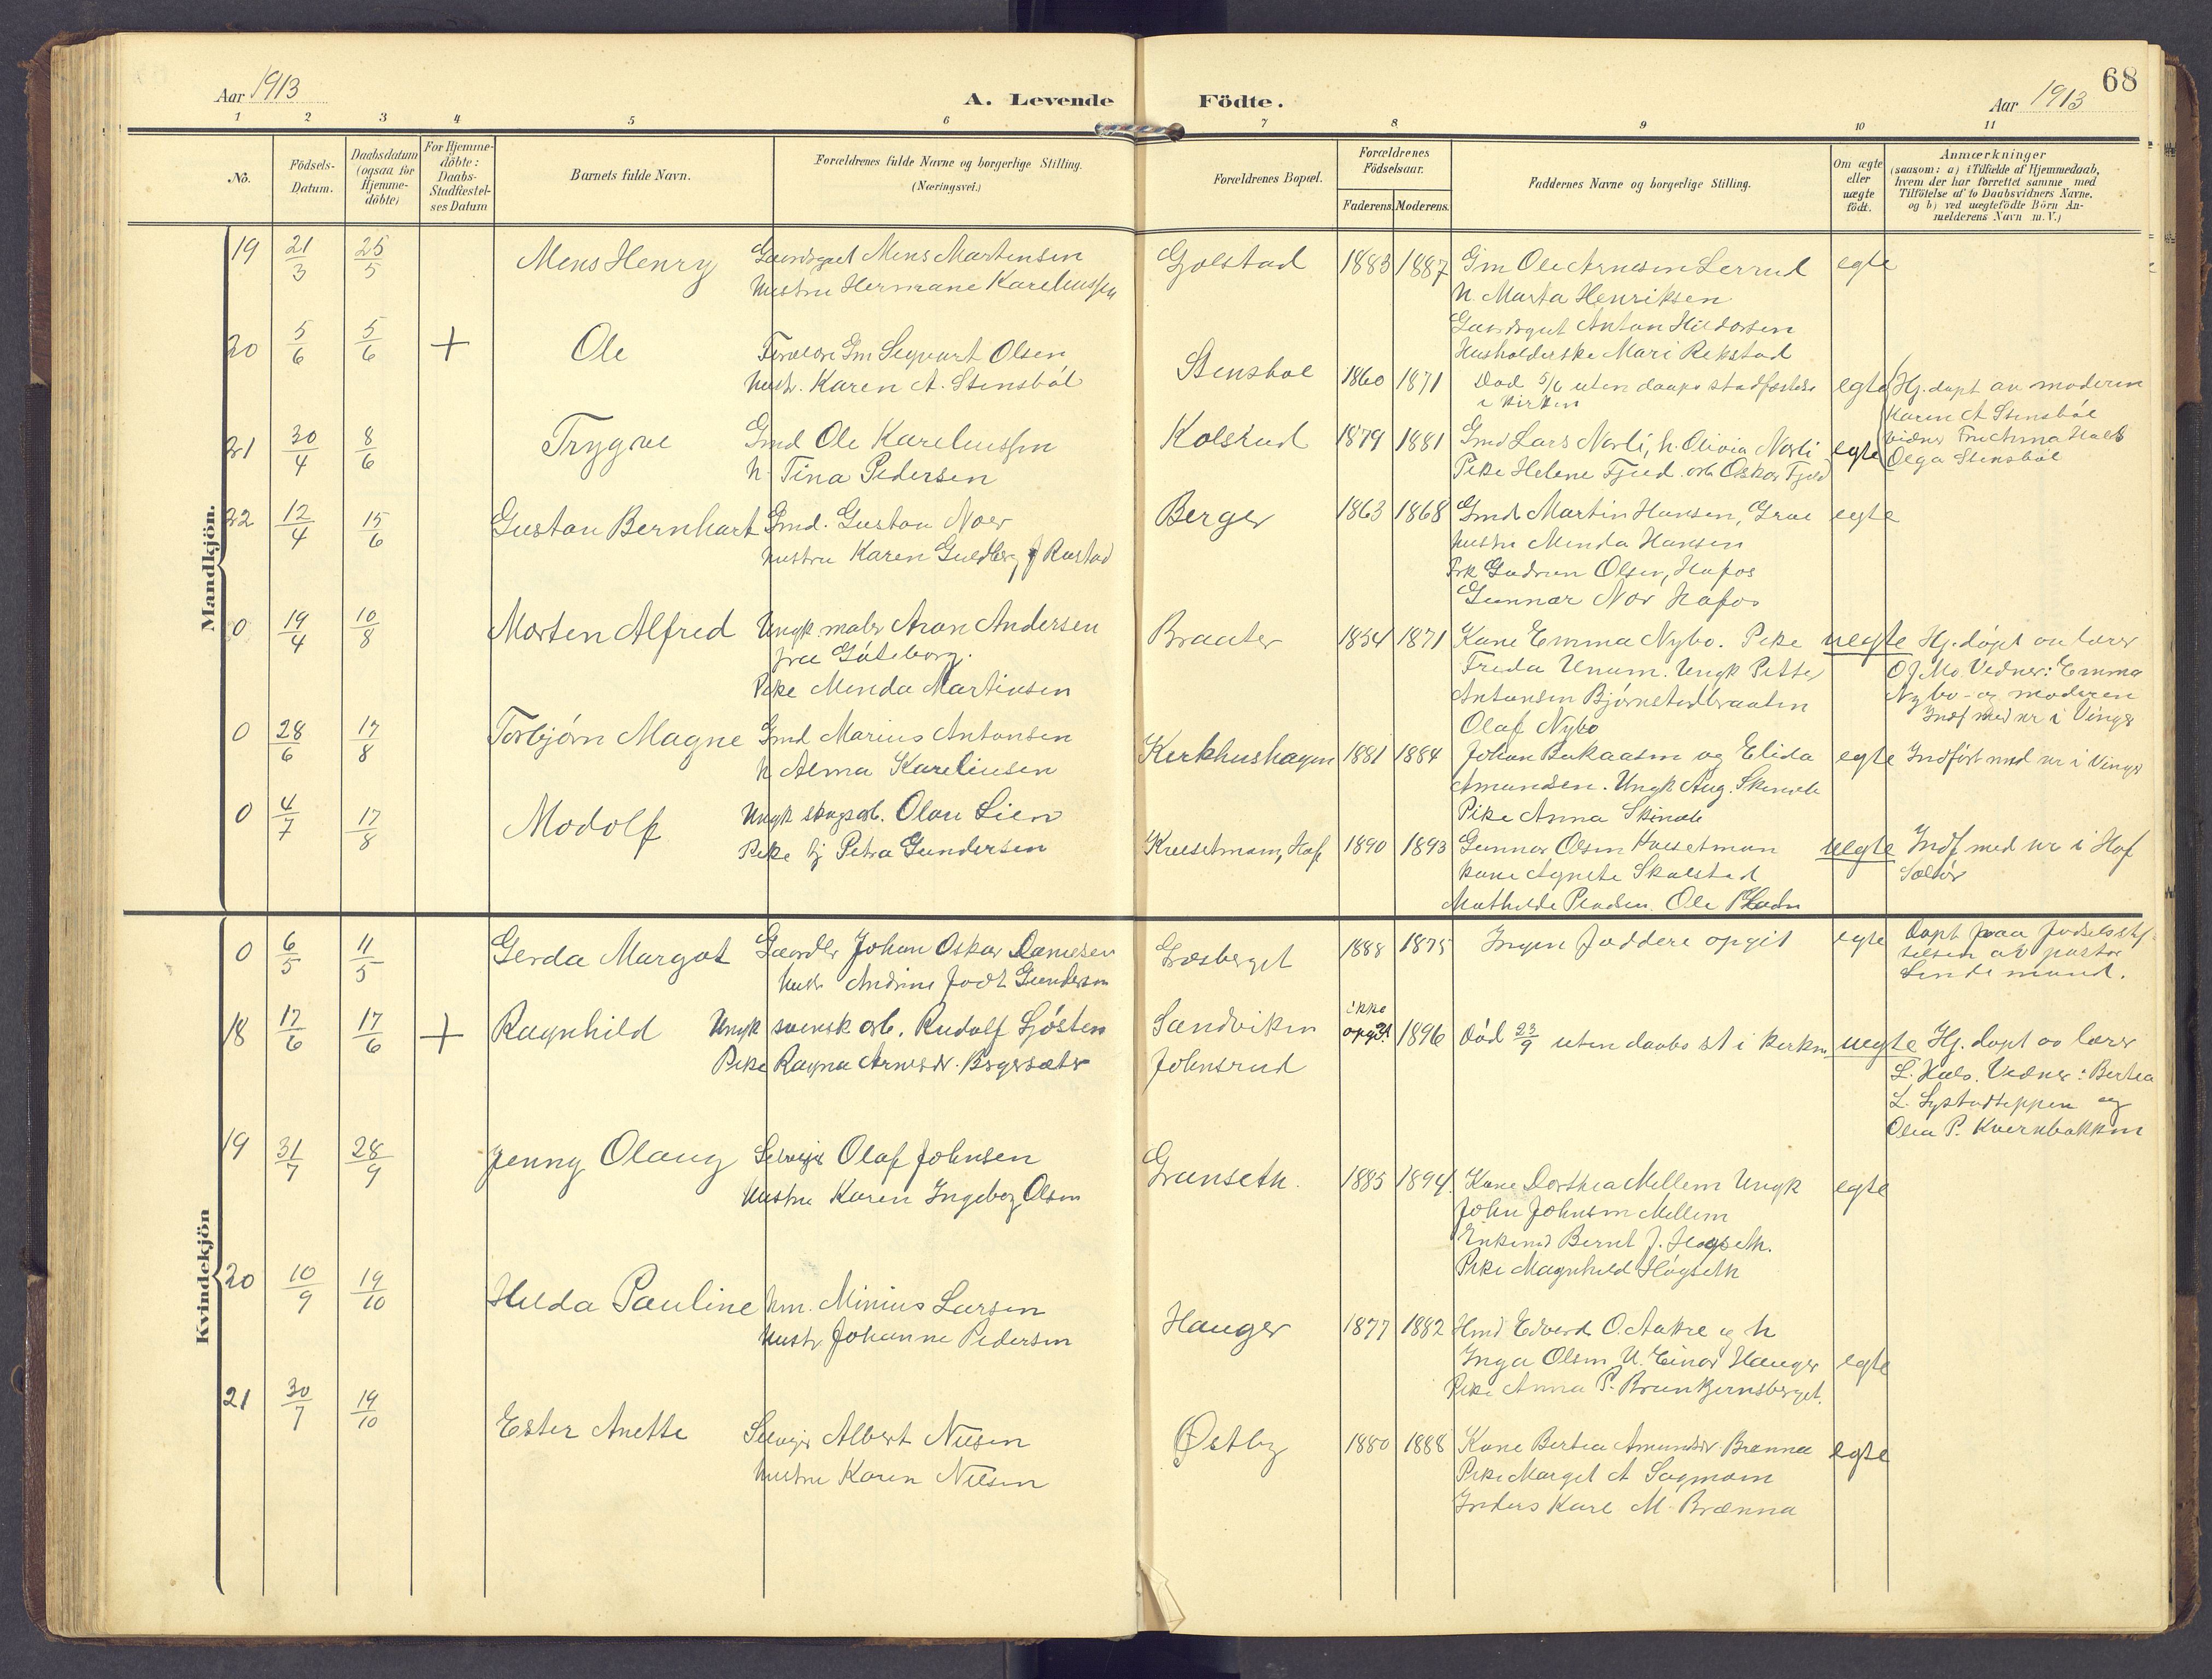 Aar 1913
A. Levende Födte.
Aar 1913
68
1 2 3 4 5 6 7 8 9 10 11
No.
Födsels-Datum.
Daabsdatum (ogsaa for Hjemme-döbte)
For Hjemme-döbte: Daabs-Stadfæstel-ses Datum
Barnets fulde Navn.
Forældrenes fulde Navne og borgerlige Stilling.
(Næringsvei.)
Forældrenes Bopæl.
Forældrenes Födselsaar.
Faderens. Moderens.
Faddernes Navne og borgerlige Stilling.
Om ægte eller uægte födt.
Anmærkninger
(saasom: a) i Tilfælde af Hjemmedaab,
hvem der har forrettet samme med
Tilföielse af to Daabsvidners Navne.
og b) ved uægtefödte Börn An-
melderens Navn m. V.)
Mandkjön.
19 21/3 25/5 Mens Henry Mens Martensen Golstad 1883 1887 Gm Ole Arnesen Lerrud egte
hustru Hermane Kareliussen h. Marta Henriksen
Anton Hildorsen
Husholderske Mari Rekstad
20 5/6 5/6 + Ole Gm Sigvart Olsen Stensbøl 1860 1871 Død 5/6 uten daaps stadfæstelse i kirken egte Hj. døpt av moderen
hustr. Karen A. Stensbøl Karen A Stensbøl
Olga Stensbøl
21 30/4 8/6 Trygve Gmd Ole Kareliussen Kolsrud 1879 1881 Gmd Lars Norli, h. Olivia Norli egte
h. Tina Pedersen Pike Helene Fjeld arb Oskar Fjeld
22 12/4 15/6 Gustav Bernhart Gmd. Gustav Noer Berger 1863 1868 Gmd Martin Hansen, Grue egte
hustru Karen Guldbrg f Rustad hustru Minda Hansen
Prk Gudrun Olsen, Hafos
Gunnar Nor Hafos
0 19/4 10/8 Morten Alfred Ungk maler Aron Andersen Braaten 1854 1871 Kone Emma Nybo. Pike uegte Hj. døpt av lærer
fra Göteborg. Freda Unum. Ungk Petter O J. Mo. Vidner: Emma
Pike Minda Martinsen Antonsen Bjørnstadbraaten Nybo og moderen
Olaf Nybo Indf med nr i Vinger
0 28/6 17/8 Torbjørn Magne Gmd Marius Antonsen Kirkhushagen 1881 1884 Johan Bakaasen og Elida egte Indført med nr i Vinger
h Alma Kareliusen Amundsen. Ungk Aug. Skinole
Pike Anna Skinole
0 4/7 17/8 Modolf Ungk skogsarb. Olav Lien 1890 1893 Gunnar Olsen uegte Indf med nr i Hof
Pike tj Petra Gundersen kone Agnete Skolstad Solør
Mathilde Ole
Kvindekjön
0 6/5 11/5 Gerda Margot Johan Oskar Danielsen Græsberget 1888 1875 Ingen faddere opgit egte Døpt paa fødselsstif-
hustr Andrine født Gundersen telsen av pastor
Lindemand.
18 17/6 17/6 + Ragnhild Ungk svensk arb. Rudolf Sjösten Sandviken ikke opgit 1896 Død 23/9 uten daabs st i kirken uegte Hj. døpt av lærer
Pike Ragna Arnesdr. Børgersæter Johnsrud L. Hals. Vidner: Bertea
L. Systadteppen og
Olea P. Kvernbakken
19 31/7 28/9 Jenny Olaug Selveier Olaf Johnsen Granseth. 1885 1894 Kone Dorthea Mellem Ungk egte
hustru Karen Ingeborg Olsen John Johnsen Mellem
Enkemd Bernt J. Høgseth.
Pike Magnhild Høgseth
20 10/9 19/10 Hilda Pauline hm. Minius Larsen Hauger 1877 1882 Hmd Edvard O. Aakre og h egte
hustr Johanne Pedersen Inga Olsen U. Einar Hauger
Pike Anna P.
21 30/7 19/10 Ester Anette Selveier Albert Nilsen Østby 1880 1888 Kone Bertea Amundsdr. Brænna egte
hustru Karen Nilsen Pike Margit A Sagmoen
Inders Karl M. Brænna